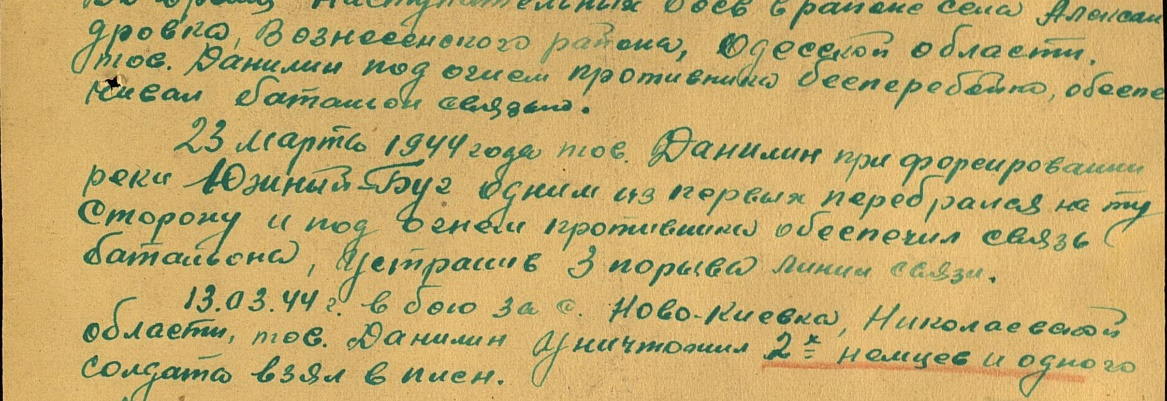 Во время наступательных боев в районе села Алексан
дровка, Вознесенского района, Одесской области,
тов. Данилин под огнем противника бесперебойно, обеспе
чивал баталион связью.
23 марта 1944 года тов. Данилин при форсировании
реки Южный-Буг одним из первых перебрался на ту
сторону и под огнем противника обеспечил связь
баталиона, устранив 3 порыва линии связи.
13.03.44 г. в бою за с. Ново-Киевка, Николаевской
области, тов. Данилин уничтожил 2х немцев и одного
солдата взял в плен.